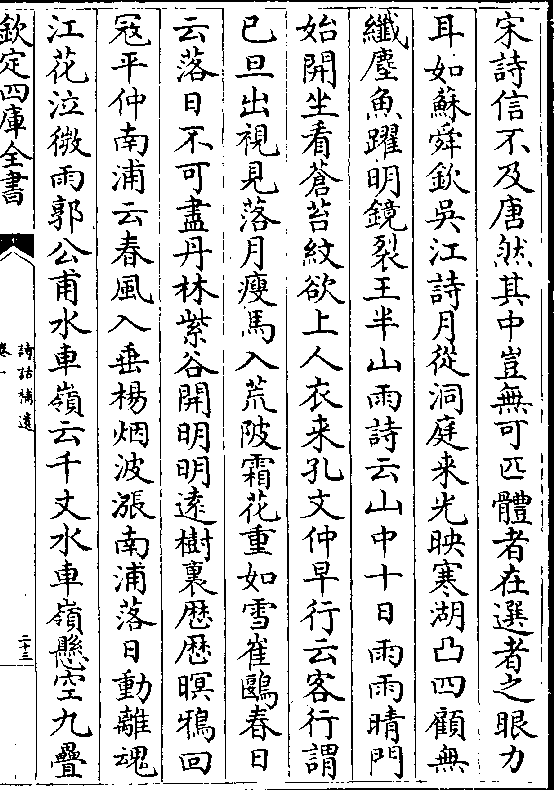 宋詩信不及唐然其中豈無可匹體者在選者之眼力
耳如蘇舜欽吳江詩月從洞庭来光映寒湖凸四顧無
纖塵魚躍明鏡裂王半山雨詩云山中十日雨雨晴門
始開坐看蒼苔紋欲上人衣来孔文仲早行云客行謂
已旦出視見落月瘦馬入荒陂霜花重如雪崔鷗春日
云落日不可盡丹林紫谷開明明逺樹裏厯厯暝鴉回
冦平仲南浦云春風入垂楊烟波漲南浦落日動離魂
江花泣微雨郭公甫水車嶺云千丈水車嶺懸空九疊
欽定四庫全書
詩話補遺
卷一
二十三